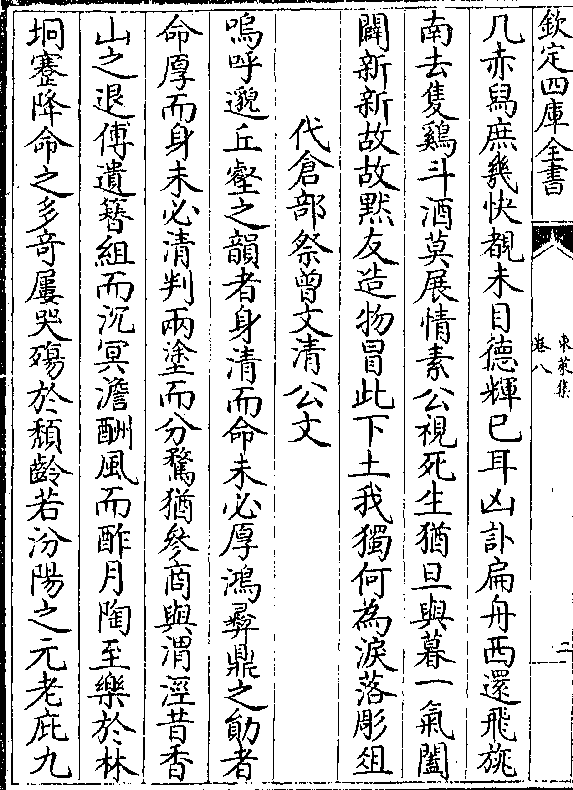 欽定四庫全書
東萊集
卷八
二
几赤舄庶幾快覩未目德輝已耳凶訃扁舟西還飛旐
南去隻鷄斗酒莫展情素公視死生猶旦與暮一氣闔
闢新新故故黙友造物冒此下土我獨何為淚落彫俎
代倉部祭曾文清公文
嗚呼邈丘壑之韻者身清而命未必厚鴻彞鼎之勛者
命厚而身未必清判兩塗而分騖猶參商與渭涇昔香
山之退傅遺簪組而沉冥澹酬風而酢月陶至樂於林
坰蹇降命之多竒屢哭殤於頽齡若汾陽之元老庇九